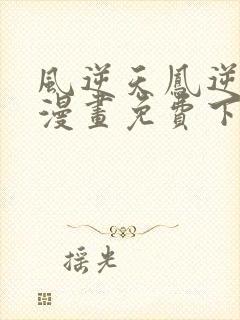 風逆天鳳逆
漫畫免費下
摇光